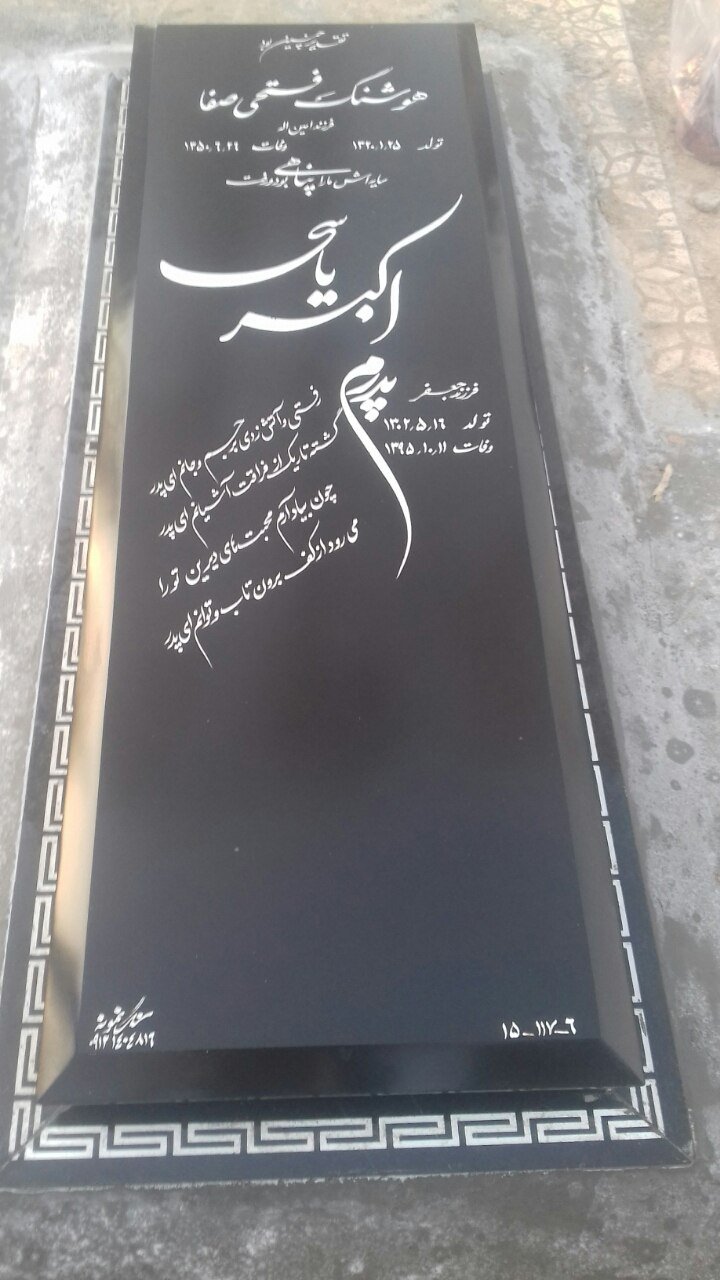 تقدیر چنین بود
هوشنگ فتحی صفا
فرزند امین اله
تولد ۱۳۲۰٫۱٫۲۵ وفات ۱۳۵۰٫۶٫۲۹
سایه اش ما را پناهی بود و رفت
اکبر یاسحی
پدرم
فرزند جعفر
تولد ۱۳۰۲٫۵٫۱۶
وفات ۱۳۹۵٫۱۰٫۱۱
رفتی و آتش زدی بر جسم و جانم ای پدر
گشته تاریک از فراقت آشیانم ای پدر
چون بیاد آرم محبت های دیرین تو را
می رود از کف برون تاب و توانم ای پدر
سنگ نمونه
۰۹۱۲۱۴۰۴۸۱۶
۱۵_۱۱۷_۶